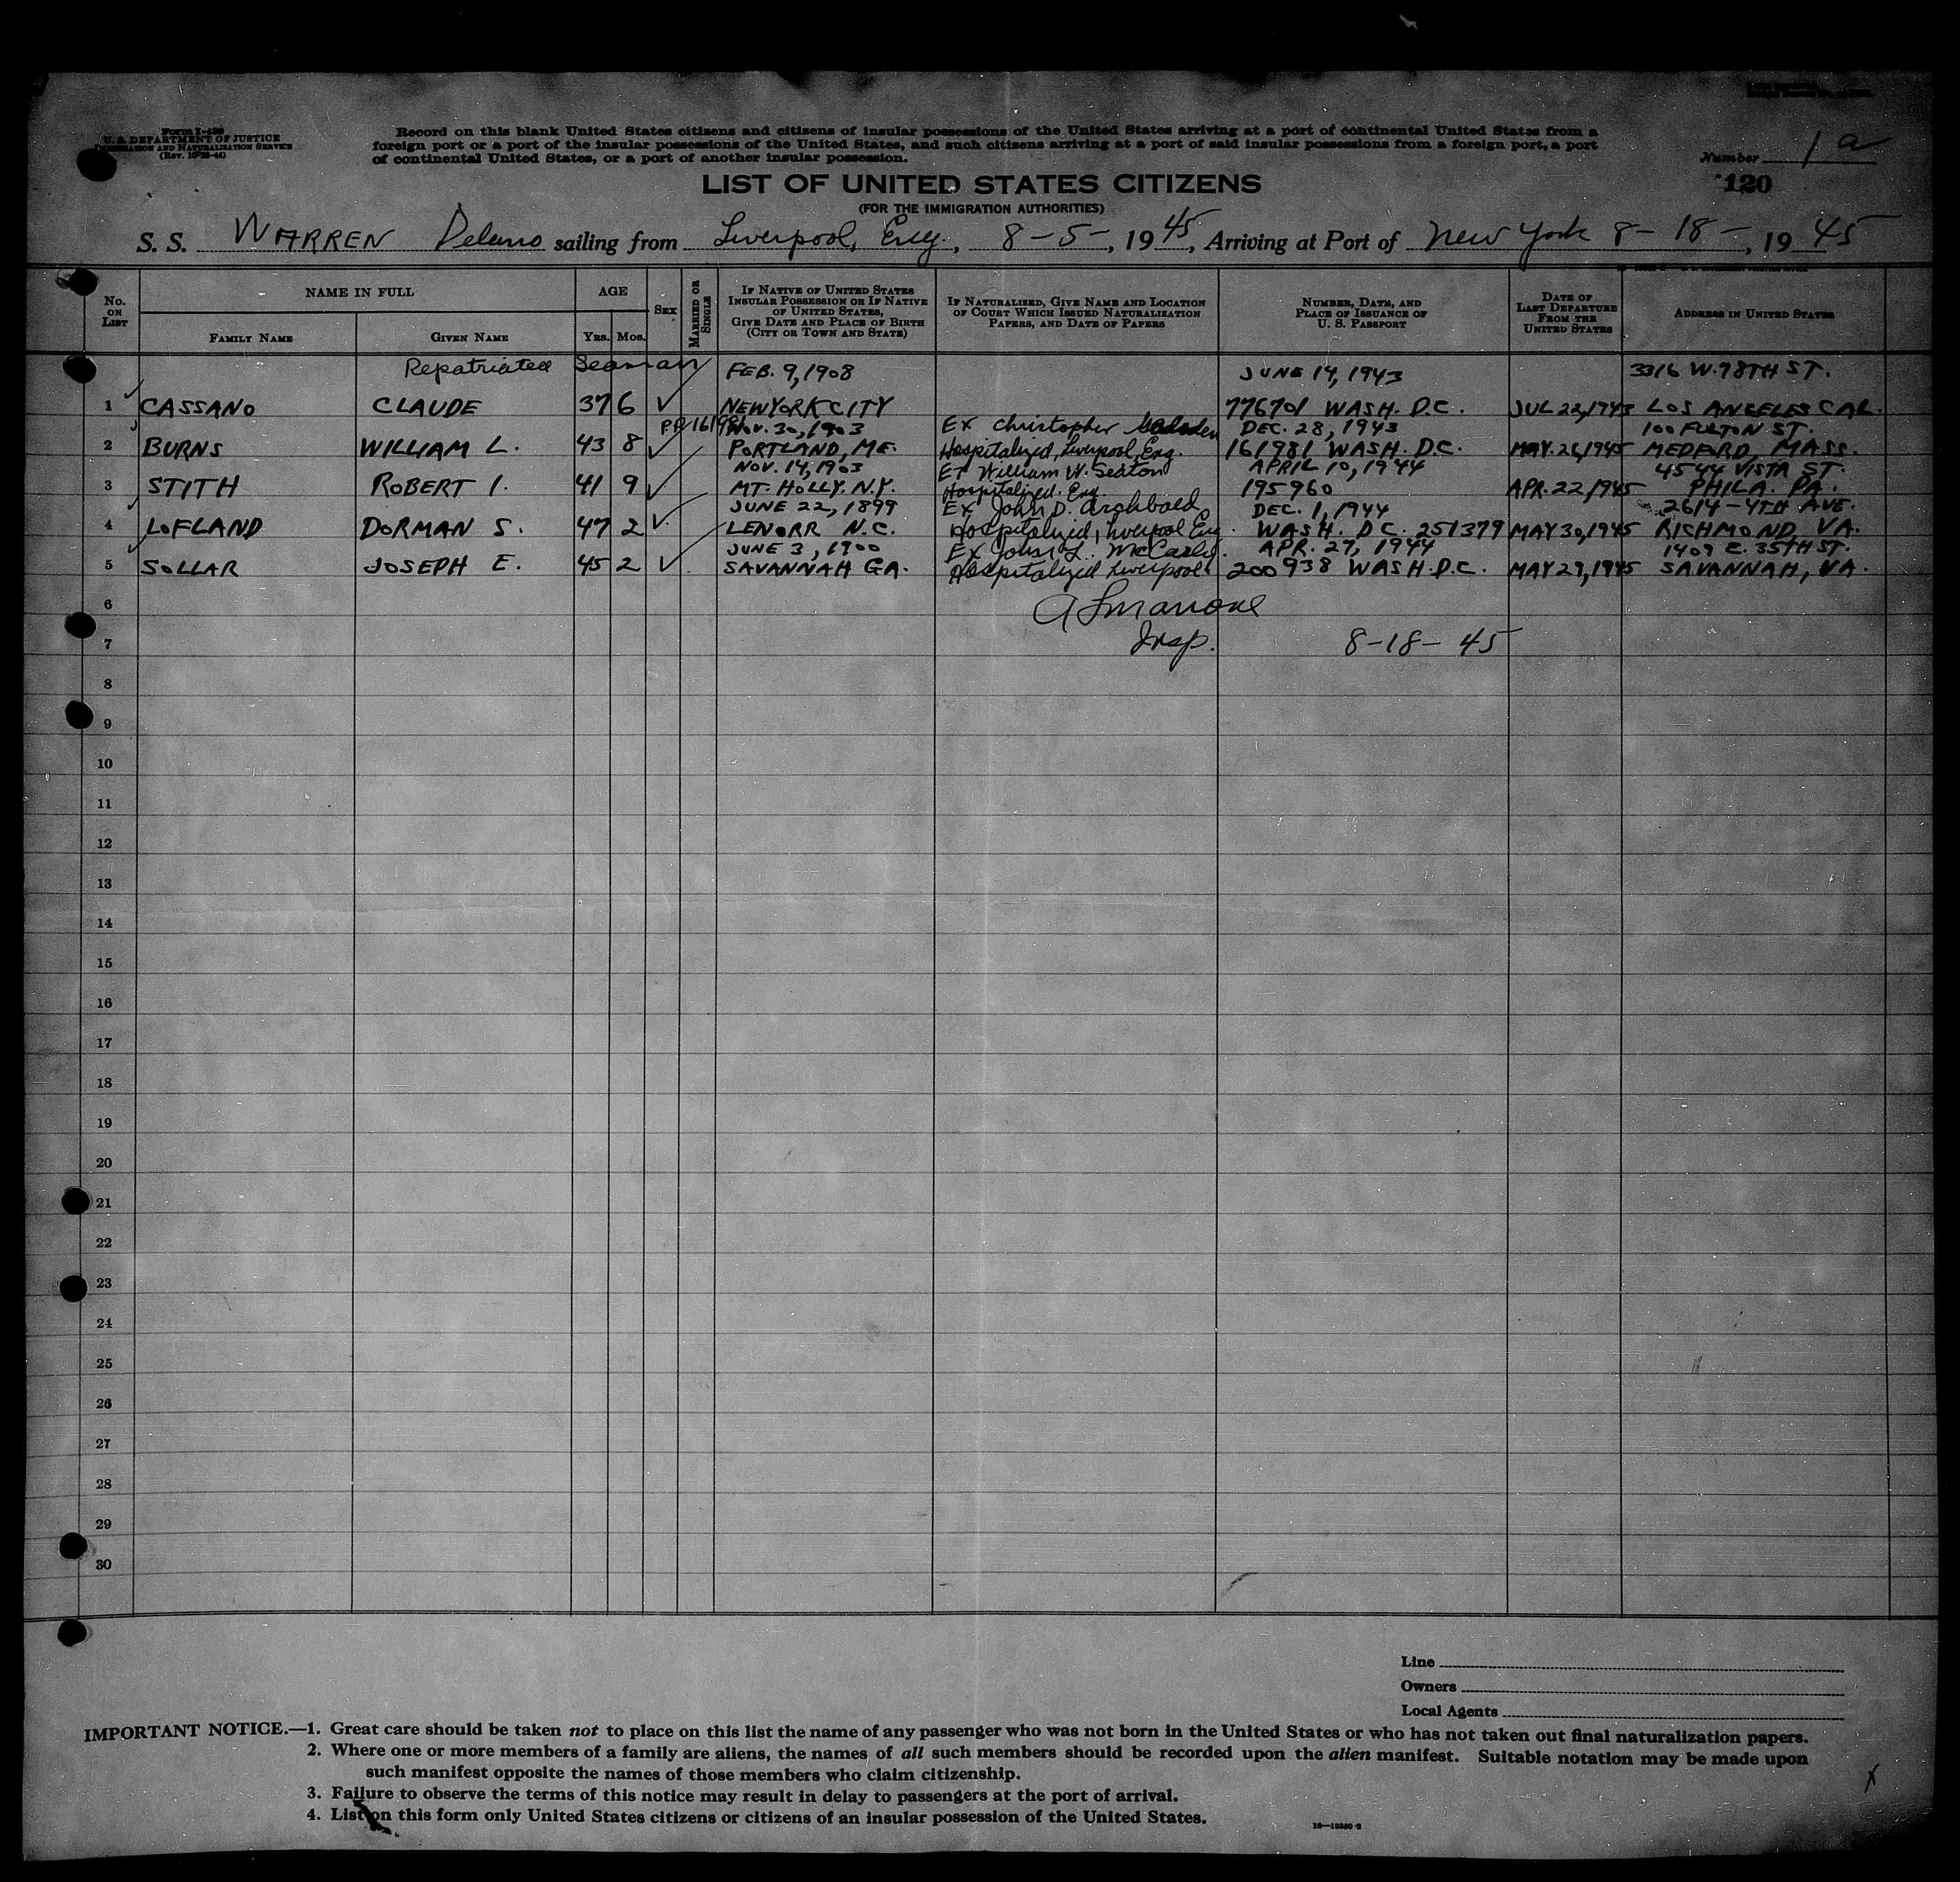 Form I-439
U. S. DEPARTMENT OF JUSTICE
IMMIGRATION AND NATURALIZATION SERVICE
(Rev. 10-25-44)
Record on this blank United States citizens and citizens of insular possessions of the United States arriving at a port of continental United States from a
foreign port or a port of the insular possessions of the United States, and such citizens arriving at a port of said insular possessions from a foreign port, a port
of continental United States, or a port of another insular possession.
Number 1 a
120
LIST OF UNITED STATES CITIZENS
(FOR THE IMMIGRATION AUTHORITIES)
S. S. WARREN Delano sailing from Liverpool, Eng., 8-5-, 1945, Arriving at Port of New York 8-18-, 1945
No. ON LIST
NAME IN FULL
FAMILY NAME
GIVEN NAME
AGE
YRS. MOS.
SEX
MARRIED OR SINGLE
IF NATIVE OF UNITED STATES INSULAR POSSESSION OR IF NATIVE OF UNITED STATES, GIVE DATE AND PLACE OF BIRTH (CITY OR TOWN AND STATE)
IF NATURALIZED, GIVE NAME AND LOCATION OF COURT WHICH ISSUED NATURALIZATION PAPERS, AND DATE OF PAPERS
NUMBER, DATE, AND PLACE OF ISSUANCE OF U. S. PASSPORT
DATE OF LAST DEPARTURE FROM THE UNITED STATES
ADDRESS IN UNITED STATES
Repatriated Seaman FEB. 9, 1908 JUNE 14, 1943 3316 W. 78TH ST.
1 CASSANO CLAUDE 37 6 ✓ NEW YORK CITY 776701 WASH. D.C. JUL 22, 1943 LOS ANGELES CAL.
P.P. 161981 NOV. 30, 1903 Ex Christopher DEC. 28, 1943 100 FULTON ST.
2 BURNS WILLIAM L. 43 8 ✓ PORTLAND, ME. Hospitalized, Liverpool, Eng. 161981 WASH. D.C. MAY. 26, 1945 MEDFORD, MASS.
NOV. 14, 1903 Ex William W. Seaton APRIL 10, 1944 4544 VISTA ST.
3 STITH ROBERT I. 41 9 ✓ MT. HOLLY. N.Y. Hospitalized. Eng. 195960 APR. 22, 1945 PHILA. PA.
JUNE 22, 1899 Ex John D. Archbold DEC. 1, 1944 2614-4TH AVE.
4 LOFLAND DORMAN S. 47 2 ✓ LENORR N.C. Hospitalized, Liverpool Eng. WASH. D.C. 251379 MAY 30, 1945 RICHMOND, VA.
JUNE 3, 1900 Ex John L. McCarly. APR. 27, 1944 1409 E. 35TH ST.
5 SOLLAR JOSEPH E. 45 2 ✓ SAVANNAH GA. Hospitalized Liverpool 200938 WASH. D.C. MAY 29, 1945 SAVANNAH, VA.
6
7 Insp. 8-18-45
8
9
10
11
12
13
14
15
16
17
18
19
20
21
22
23
24
25
26
27
28
29
30
Line
Owners
Local Agents
IMPORTANT NOTICE.—1. Great care should be taken not to place on this list the name of any passenger who was not born in the United States or who has not taken out final naturalization papers.
2. Where one or more members of a family are aliens, the names of all such members should be recorded upon the alien manifest. Suitable notation may be made upon
such manifest opposite the names of those members who claim citizenship.
3. Failure to observe the terms of this notice may result in delay to passengers at the port of arrival.
4. List on this form only United States citizens or citizens of an insular possession of the United States.